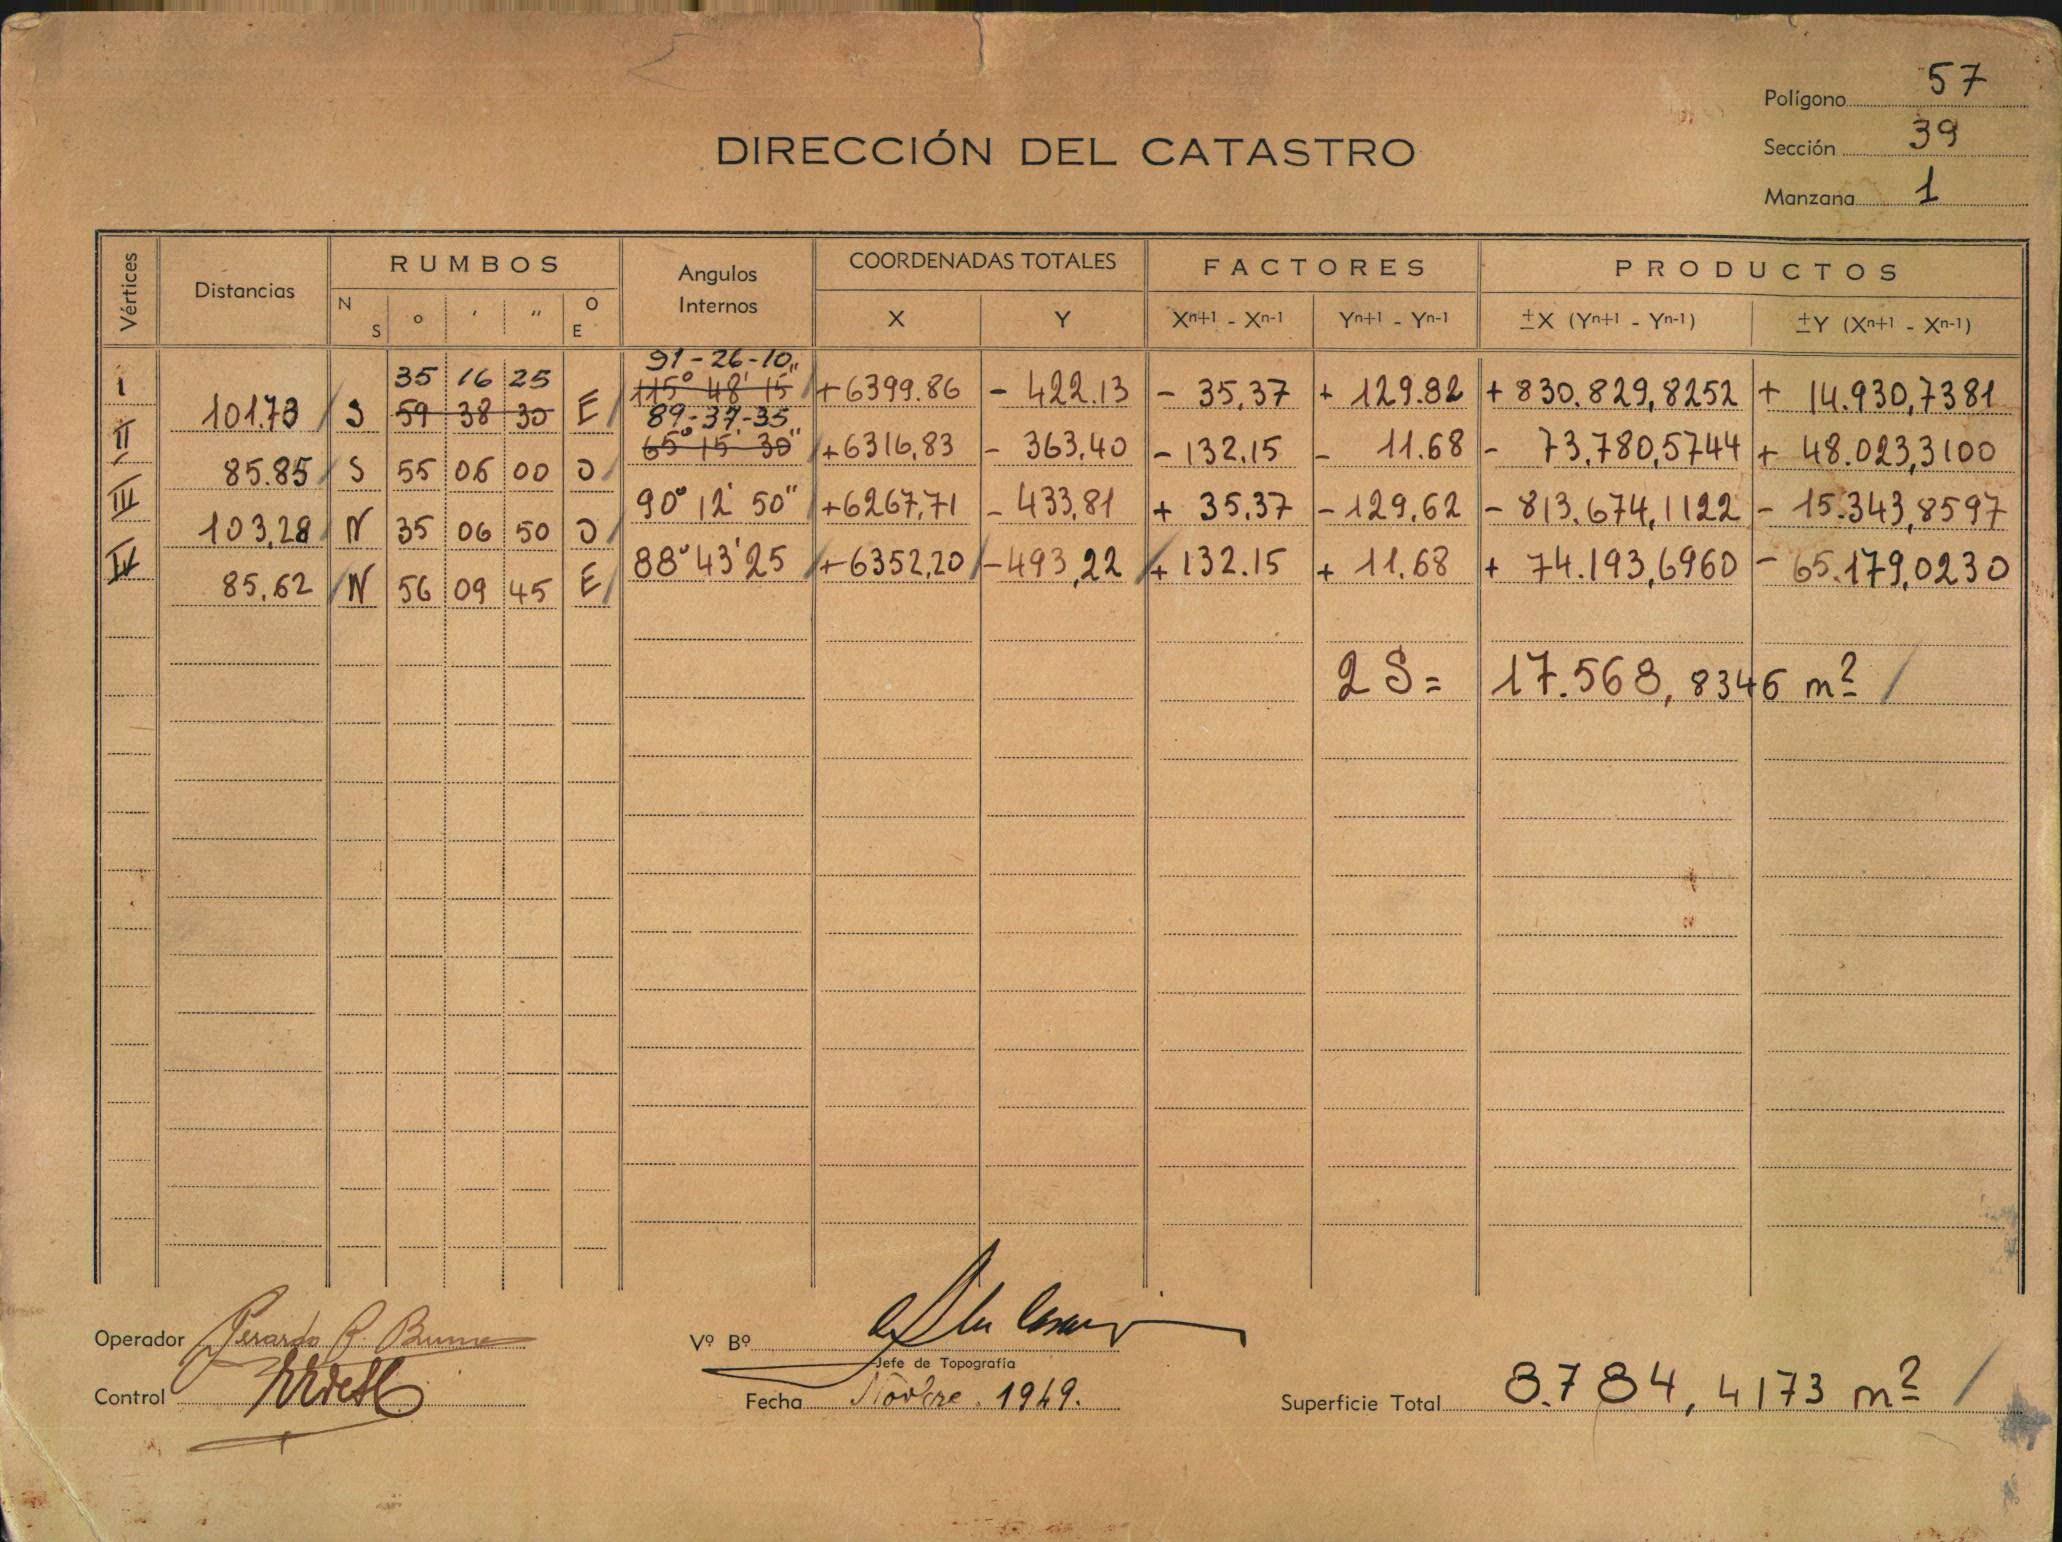 Polígono 57
DIRECCIÓN DEL CATASTRO
Sección 39
Manzana 1
Vértices Distancias RUMBOS Angulos Internos COORDENADAS TOTALES FACTORES PRODUCTOS
N S ° ' " O E X Y Xn+1 - Xn-1 Yn+1 - Yn-1 ±X (Yn+1 - Yn-1) ±Y (Xn+1 - Xn-1)
91-26-10"
I 35 16 25 115° 48' 15" +6399.86 - 422.13 - 35,37 + 129.82 + 830.829,8252 + 14.930,7381
101.73 S 59 38 30 E 89-37-35
II 65° 15' 30" +6316,83 - 363,40 - 132.15 - 11.68 - 73.780,5744 + 48.023,3100
85.85 S 55 06 00 O
III 90° 12' 50" +6267,71 - 433,81 + 35,37 - 129,62 - 813.674,1122 - 15.343,8597
103,28 N 35 06 50 O
IV 88° 43' 25 +6352,20 - 493,22 + 132.15 + 11,68 + 74.193,6960 - 65.179,0230
85,62 N 56 09 45 E
2 S = 17.568,8346 m2
Operador Gerardo R.
Vº Bº
Jefe de Topografía
Control
Fecha Novbre. 1949.
Superficie Total 8.784,4173 m2